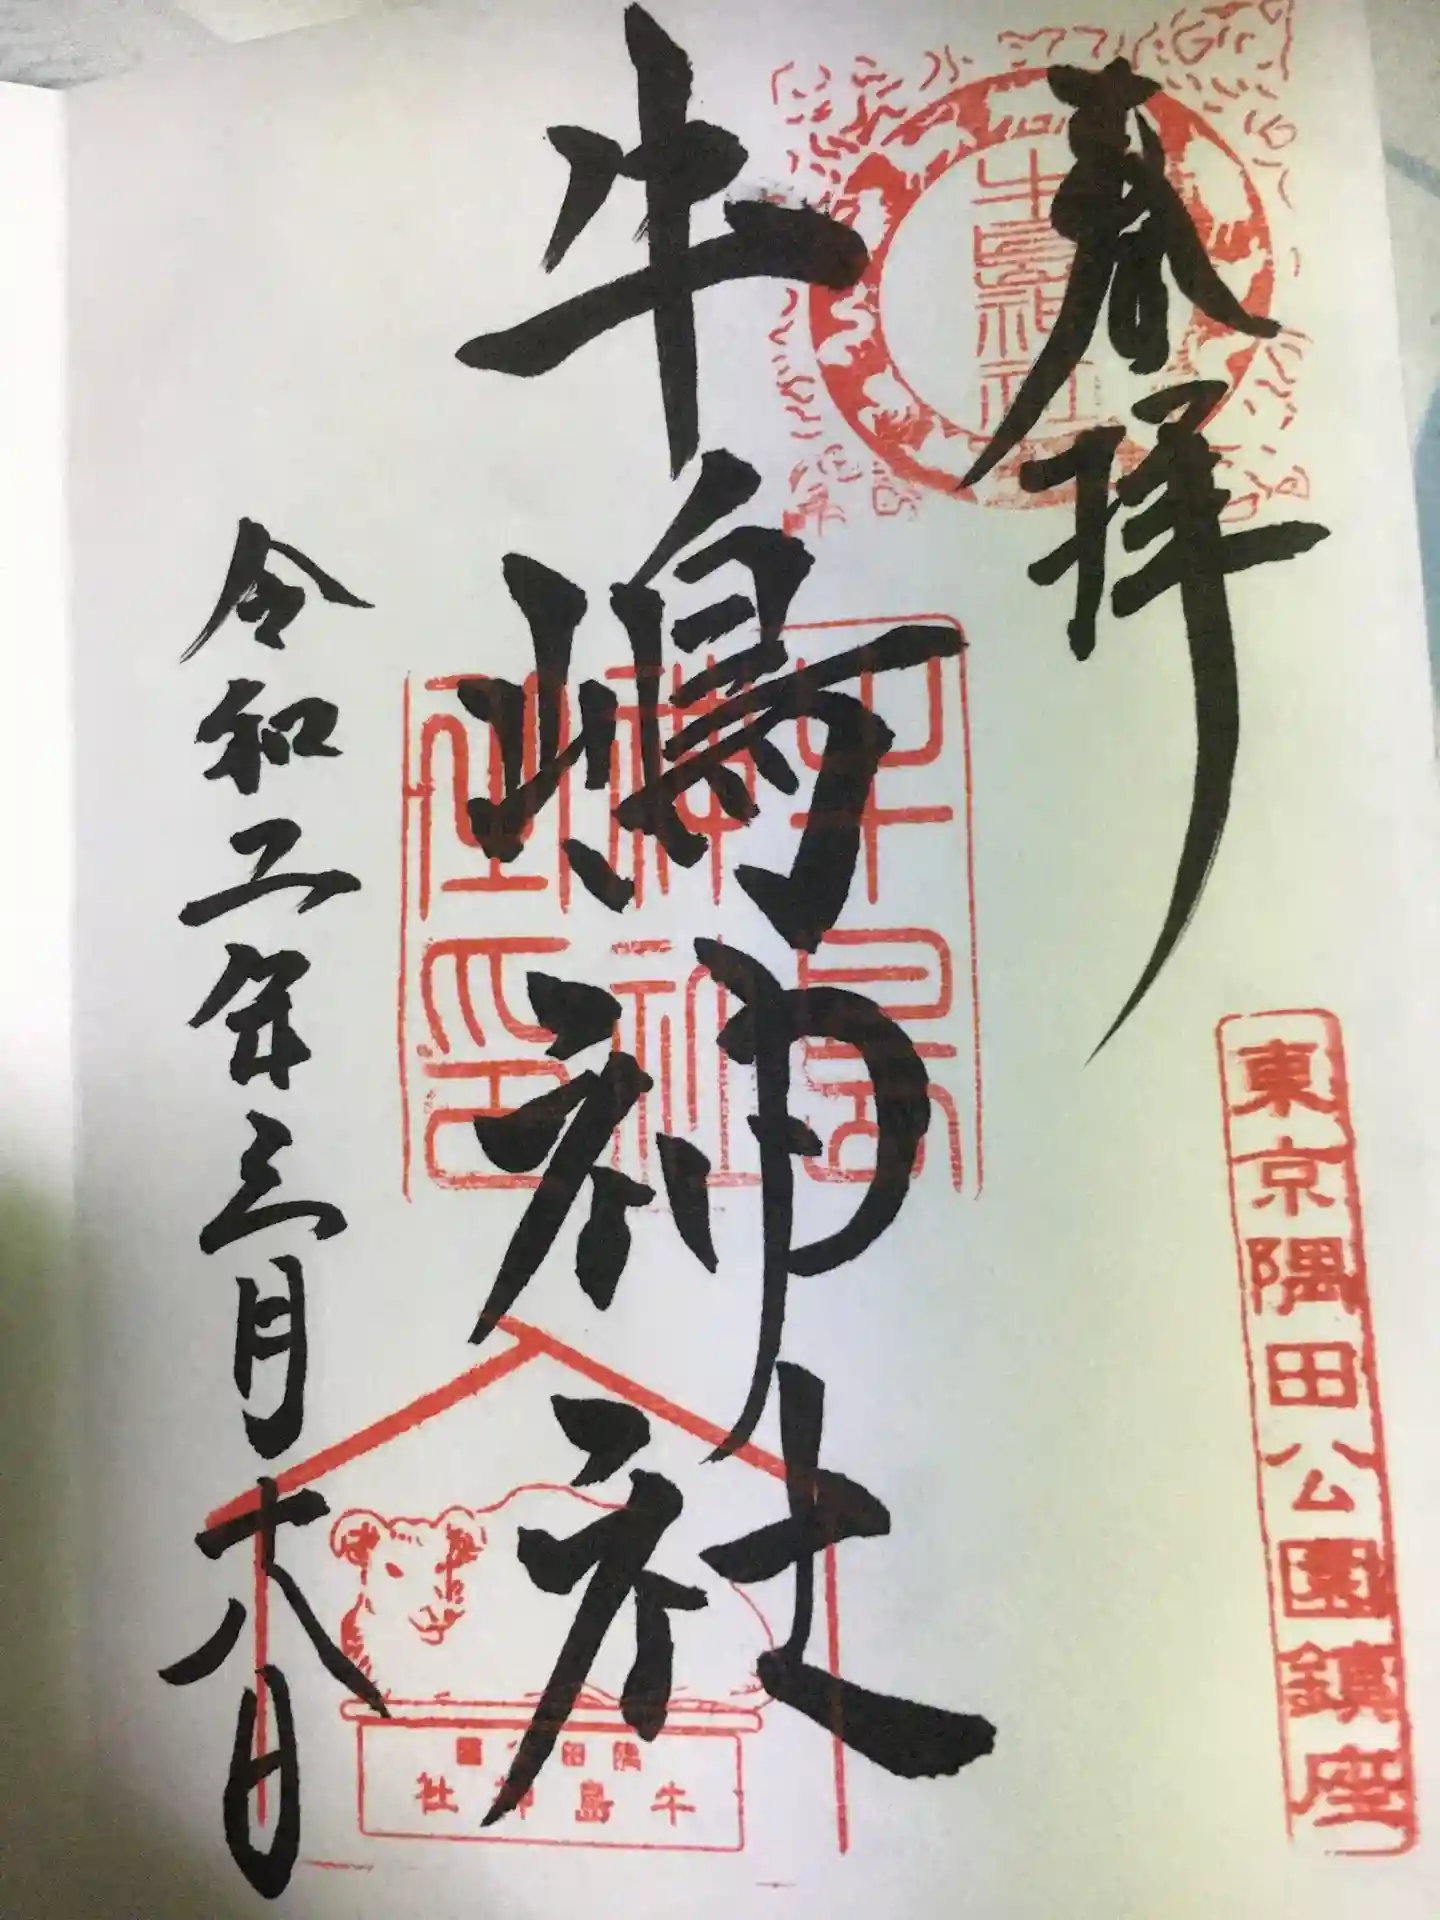 奉拝
牛島神社
東京隅田公園鎮座
牛嶋神社
牛島神社之印
令和二年三月十八日
隅田公園
牛島神社